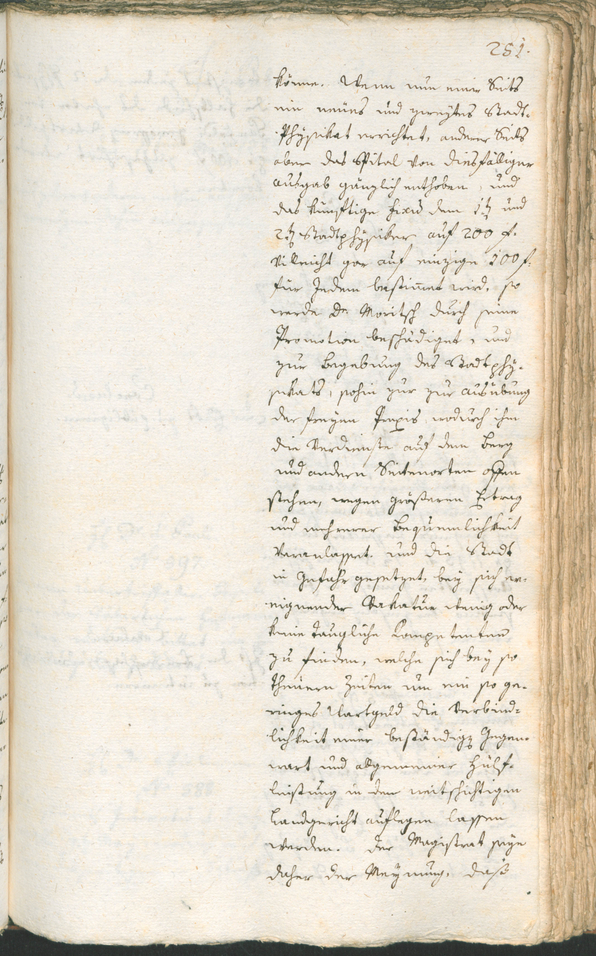 281.
könne. Wenn nun einer Seits
ein neues und zweytes Stadt-
Physikat errichtet, anderer Seits
aber das Spital von diesfälliger
ausgab gänzlich enthoben, und
das künftige fixum dem 1t und
2t Stadtphysiker auf 200 f.
villeicht gar auf einzige 100 f.
für Jedem bestimmt wird, so
werde Dr. Moritsch durch seine
Promotion beschädiget, und
zur Begebung des Stadtphy-
sikats, sohin zur ausübung
der freyen Praxis, wodurch ihm
die Verdienste auf dem Berg
und andern Seitenorten offen
stehen, wegen größeren Ertrag
und mehrerer Bequemlichkeit
veranlasset, und die Stadt
in Gefahr gesetzet, bey sich er-
eignender Vakatur wenig oder
keine taugliche Competenten
zu finden, welche sich bey so
theuern Zeiten um ein so ge-
ringes Wartgeld die Verbind-
lichkeit einer beständigen Gegen-
wart und allgemeiner Hülf-
leistung in dem weitschichtigen
Landgericht auflegen lassen
werden. Der Magistrat seye
daher der Meynung, daß